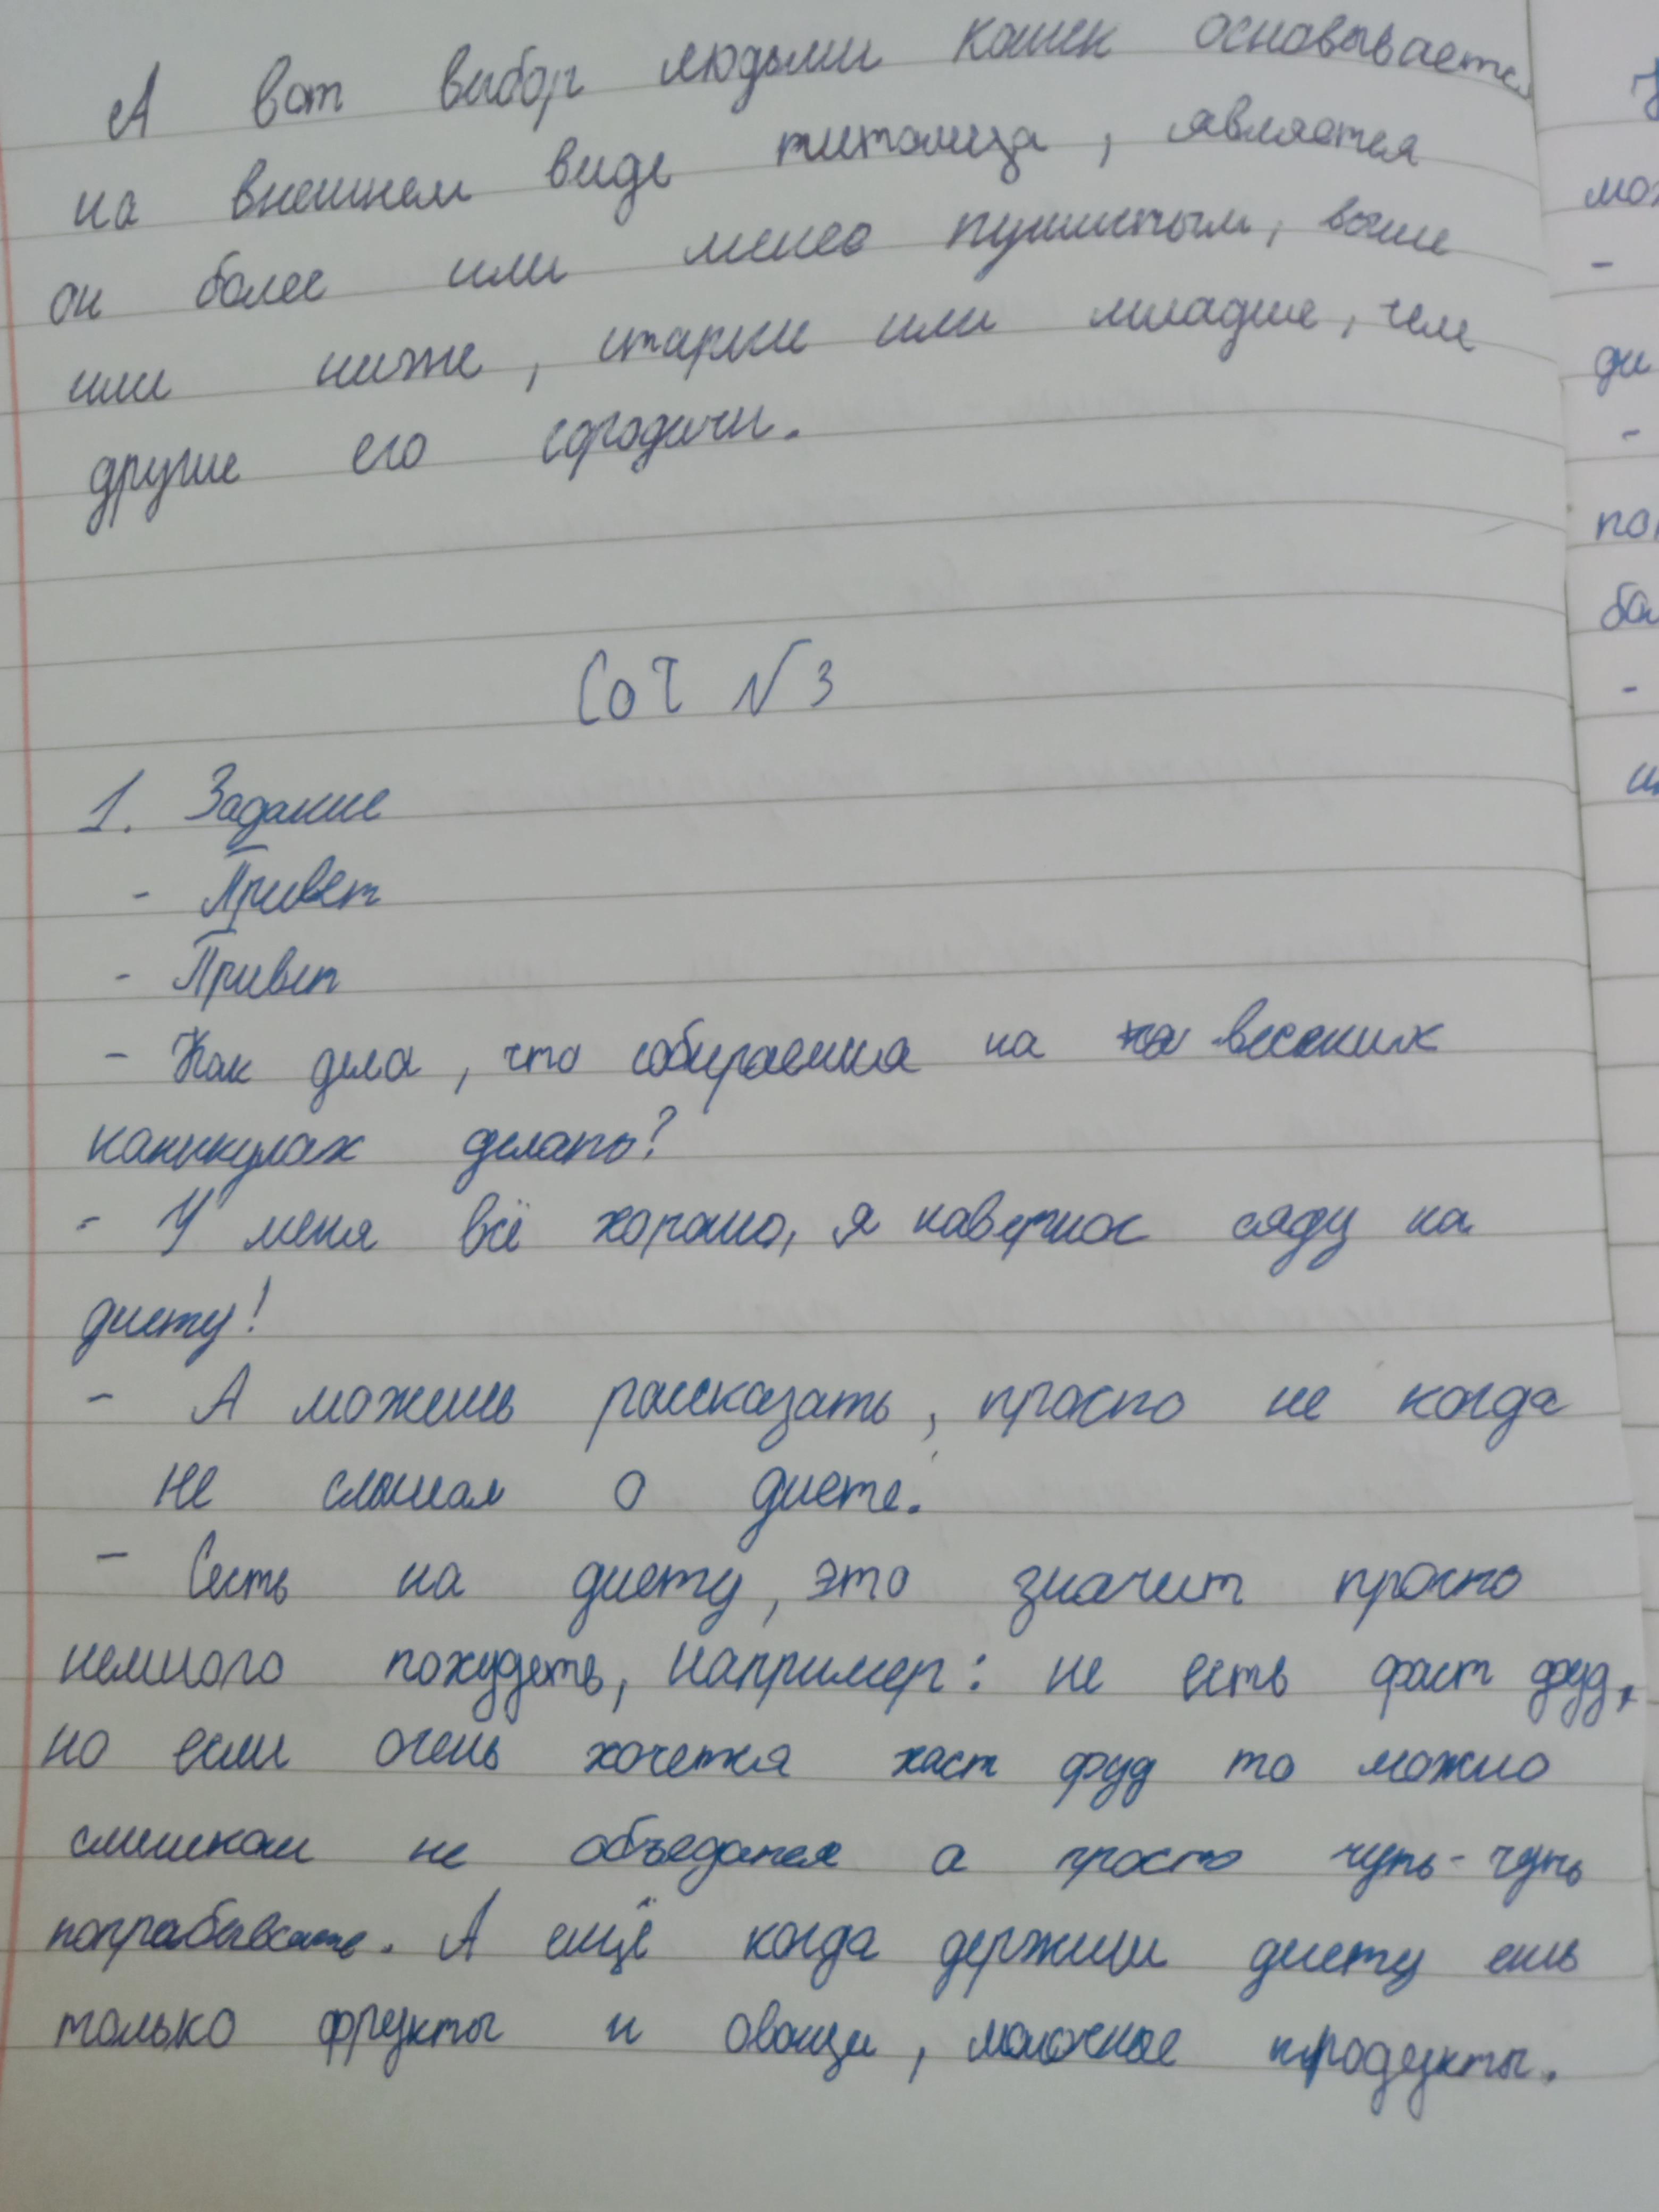 А вот выбор людьми кошек основывается
на внешнем виде питомца, является
он более или менее пушистым, выше
или ниже, старше или младше, чем
другие его сородичи.
СоЧ №3
1. Задание
- Привет
- Привет
- Как дела, что собираешься на весених
каникулах делать?
- У меня всё хорошо, я наверное сяду на
диету!
- А можешь рассказать, просто не когда
не слышал о диете.
- Сесть на диету, это значит просто
немного похудеть, например: не есть фаст фуд,
но если очень хочется хаст фуд то можно
слишком не объедатся а просто чуть-чуть
попрабывать. А ещё когда держиш диету ешь
только фрукты и овощи, молочные продукты.
мо
-
ди
-
по
бо
-